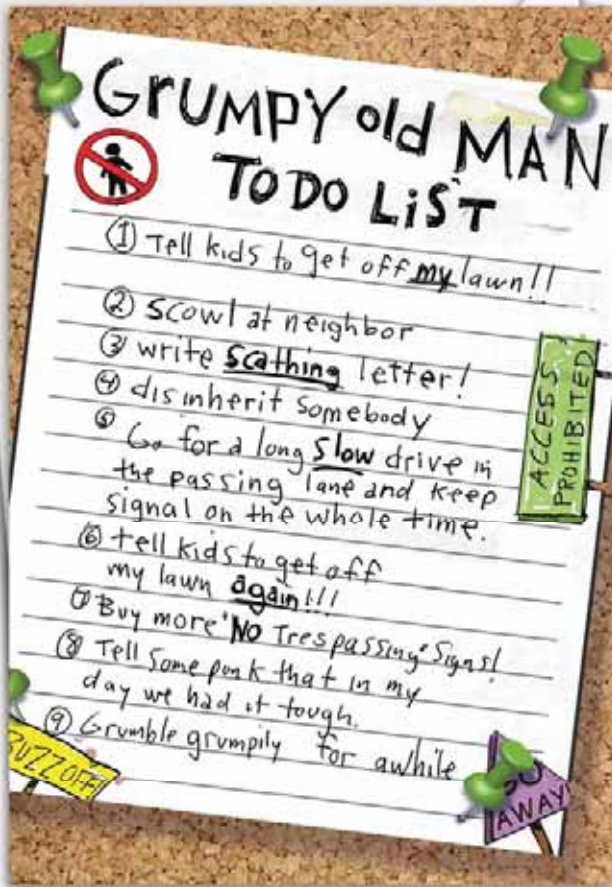 GRUMPY old MAN
TO DO LiST
① Tell kids to get off my lawn!!
② Scowl at neighbor
③ write scathing letter!
④ disinherit somebody
⑤ Go for a long slow drive in
the passing lane and keep
signal on the whole time.
⑥ tell kids to get off
my lawn again!!!
⑦ Buy more "NO Trespassing" Signs!
⑧ Tell some punk that in my
day we had it tough.
⑨ Grumble grumpily for awhile
ACCESS
PROHIBITED
BUZZ OFF!
GO
AWAY!